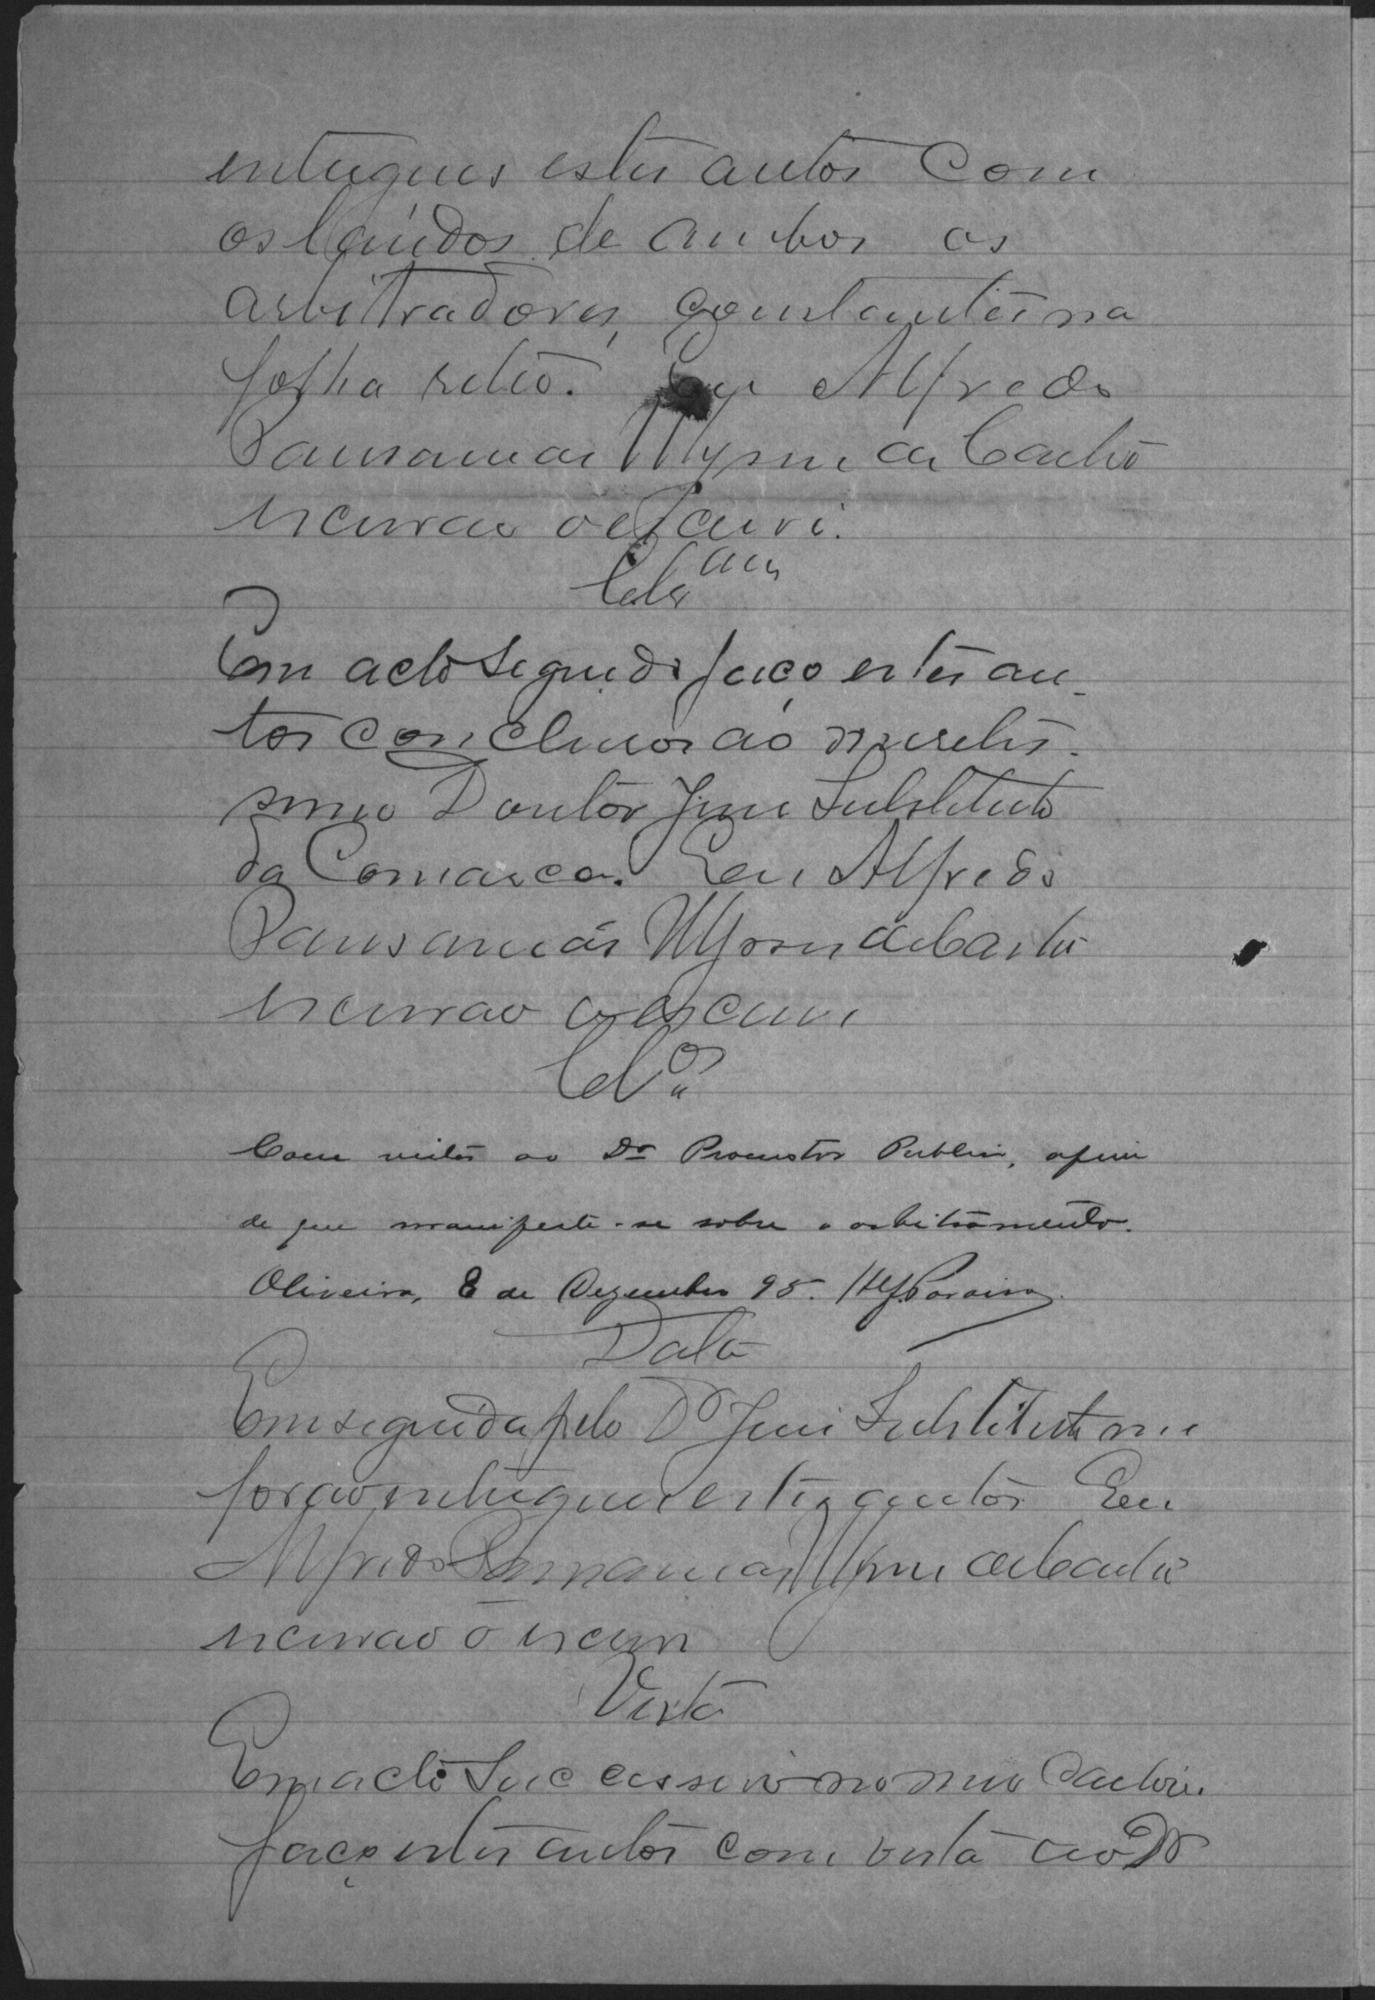 entregues estes autos com
os laudos de ambos os
arbitradores, constantes na
folha retro. Eu Alfredo
Pausanias Wynne de Castro
escrivão o escrevi.
Clsam
Em acto seguido faço estes au-
tos conclusos ao meretis-
simo Doutor Juiz Substituto
da Comarca. Eu Alfredo
Pausanias Wynne de Castro
escrivão o escrevi
Clos
Com vistas ao Dr Promotor Publico, afim
de que manifeste-se sobre o arbitramento.
Oliveira, 8 de Dezembro 95.
Data
Em seguida pelo Dr Juiz Substituto me
forão entregues estes autos Eu
Alfredo Pausanias Wynne de Castro
escrivão o escrevi
Vista
Em acto successivo no meu cartorio
faço estes autos com vista ao Dr